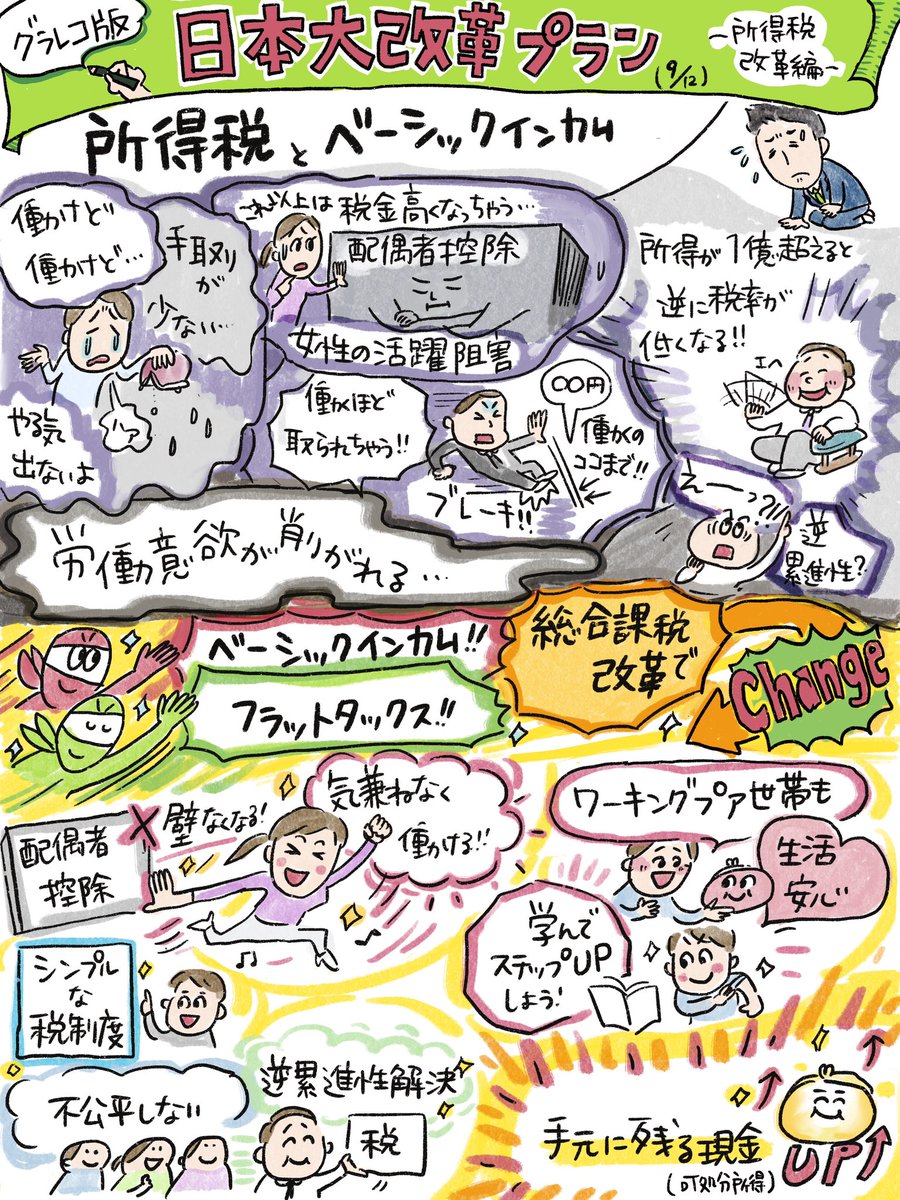 グラレコ版
日本大改革プラン
(9/12)
~所得税
改革編~
所得税とベーシックインカム
働かけど
働かけど…
手取りが
少ない…
ハァ
やる気
出ないよ
これ以上は税金高くなっちゃう…
配偶者控除
女性の活躍阻害
働くほど
取られちゃう!!
ブレーキ!!
〇〇円
働くの
ココまで!!
所得が1億超えると
逆に税率が
低くなる!!
エヘ
えーっ?!!
逆
累進性?
労働意欲が削がれる…
ベーシックインカム!!
フラットタックス!!
総合課税
改革で
Change
配偶者
控除
壁なくなる!
気兼ねなく
働かける!!
ワーキングプア世帯も
生活
安心
学んで
ステップUP
しよう!
シンプル
な
税制度
不公平しない
逆累進性解決
税
手元に残る現金
(可処分所得)
UP